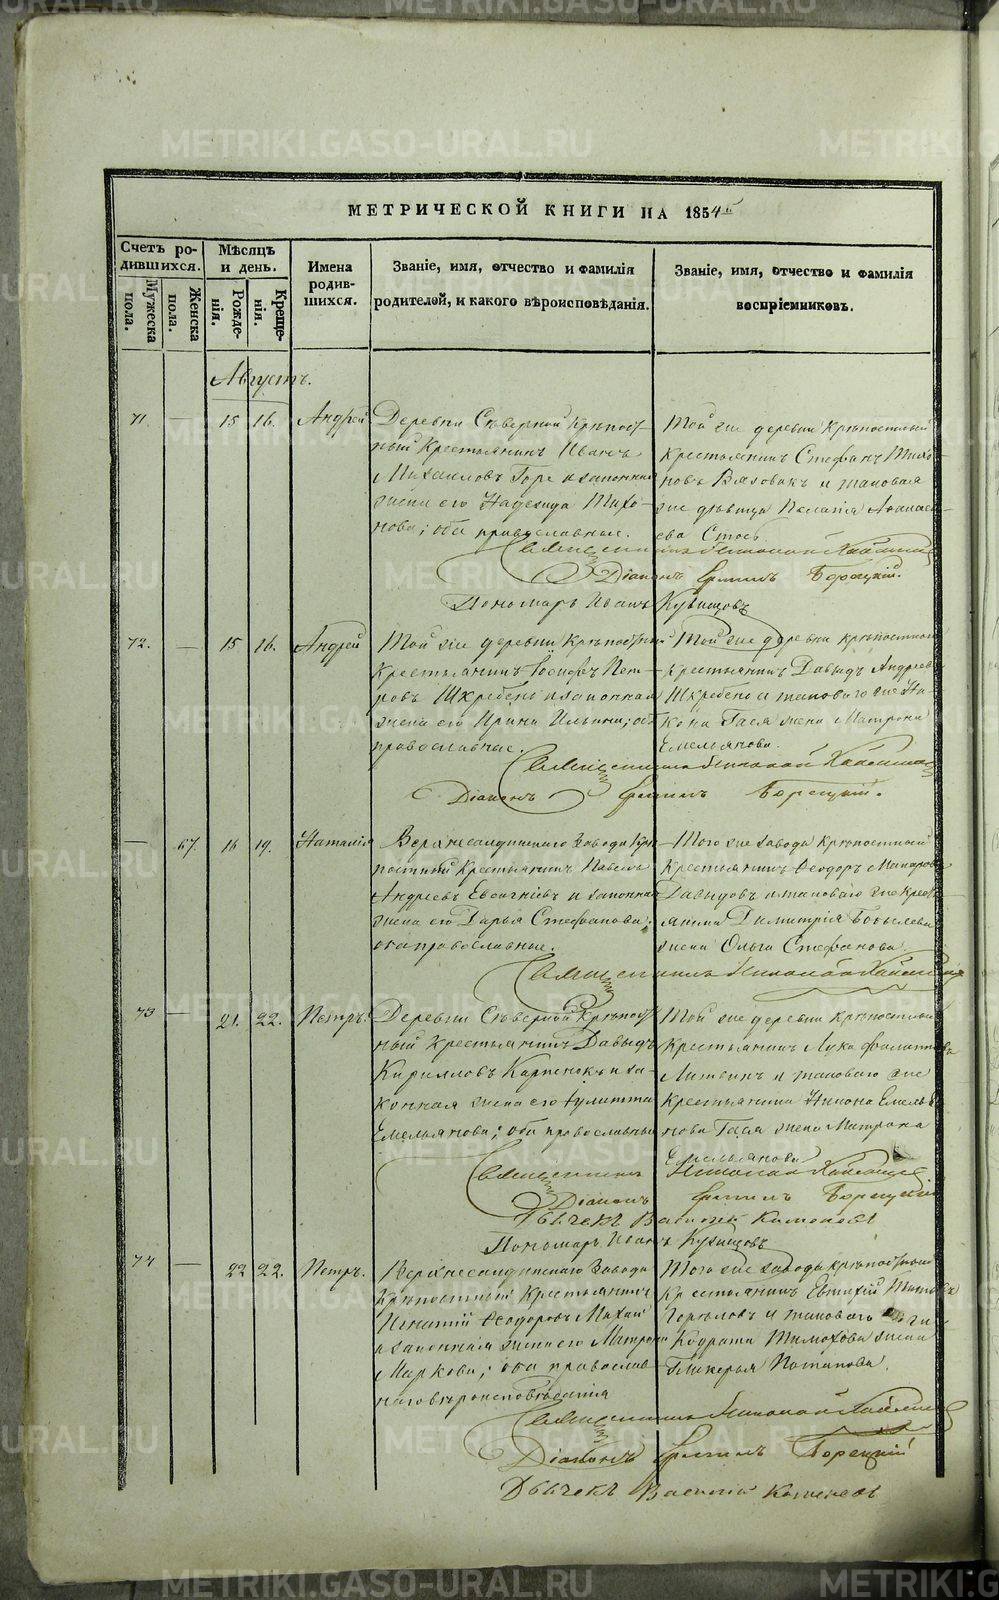 METRIKI.GASO-URAL.RU
МЕТРИЧЕСКОЙ КНИГИ НА 1854й
Счетъ ро-
дившихся.
Мужеска
пола.
Женска
пола.
Мѣсяцъ
и день.
Рожде-
нія.
Креще-
нія.
Имена
родив-
шихся.
Званіе, имя, отчество и фамилія
родителей, и какого вѣроисповѣданія.
Званіе, имя, отчество и фамилія
воспріемниковъ.
Августъ.
71. — 15 16. Андрей
Деревни Сѣверной Крѣпост-
ный Крестьянинъ Иванъ
Михаиловъ Горе и законная
жена его Надежда Тихо-
нова; оба православные.
Той же деревни Крѣпостный
Крестьянинъ Стефанъ Тихо-
новъ и таковая
же дѣвица Пелагія Афанась-
ева
Священникъ Николай
Діаконъ Борецкій.
Пономарь Иванъ Кувшовъ
72. — 15 16. Андрей
Той же деревни Крѣпостный
Крестьянинъ Іосифъ Пет-
ровъ Шкребень и законная
жена его Ирина Ильина; оба
православные.
Той же деревни крѣпостной
крестьянинъ Давыдъ Андреевъ
Шкребень и таковаго же Ни-
кона Гася жена Матрона
Емельянова.
Священникъ Николай
Діаконъ Борецкій.
— 67. 16 19. Наталія
Верхнесалдинскаго Завода Крѣ-
постный Крестьянинъ Павелъ
Андреевъ и законная
жена его Дарья Стефанова;
оба православные.
Того же завода Крѣпостной
Крестьянинъ Ѳеодоръ Макаровъ
Давыдовъ и таковаго же крест-
янина Димитрія жена
Ольга Стефанова
Священникъ Николай
73 — 21. 22. Петръ.
Деревни Сѣверной Крѣпост-
ный Крестьянинъ Давыдъ
Кирилловъ Карпенокъ и за-
конная жена его Іулитта
Емельянова; оба православные
Той же деревни Крѣпостной
Крестьянинъ Лука
Литвинъ и таковаго же
Крестьянина Никона Емелья-
нова Гася жена Матрона
Емельянова
Священникъ Николай
Діаконъ Борецкій
Дьячекъ Василій
Пономарь Иванъ Кувшовъ
74 — 22 22. Петръ.
Верхнесалдинскаго Завода
Крѣпостный Крестьянинъ
Игнатій Ѳеодоровъ Михай
и законная жена его Матрона
Маркова; оба православ-
наго вѣроисповѣданія
Того же завода крѣпостной
Крестьянинъ Евтихій Титовъ
Гореловъ и таковаго же
Кодрата Тимохова жена
Гликерья Потапова.
Священникъ Николай
Діаконъ Борецкій
Дьячекъ Василій